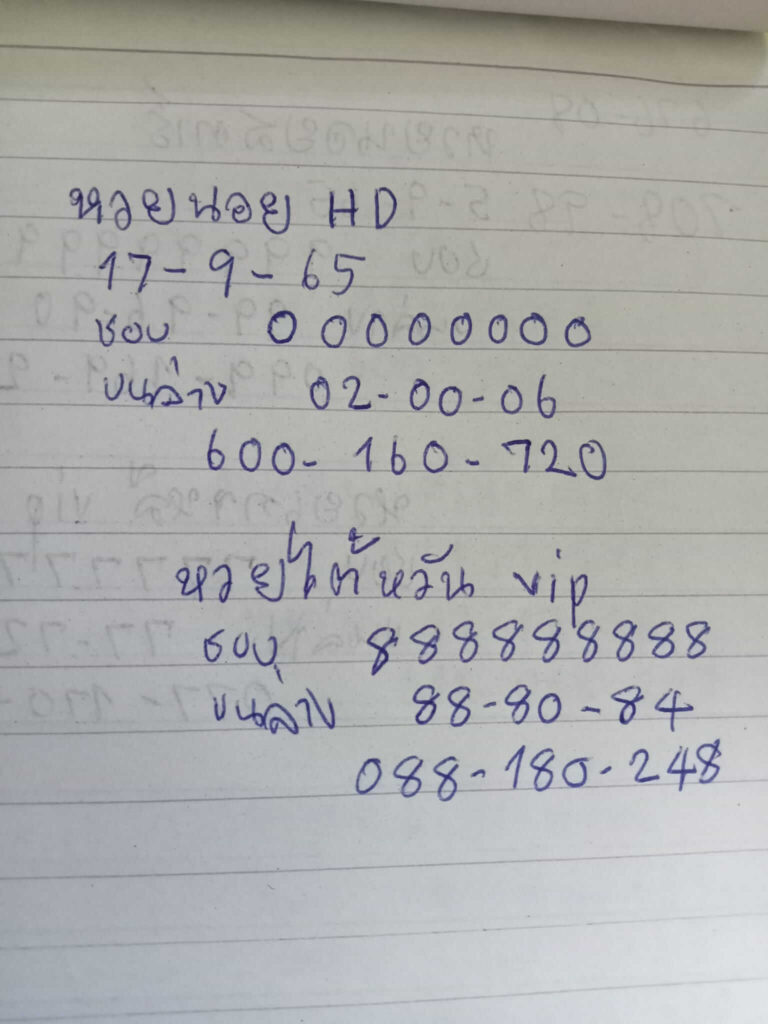 หวยนอย HD
17-9-65
ชอบ 00000000
บนล่าง 02-00-06
600-160-720
หวยไต้หวัน vip
ชอบ 888888888
บนล่าง 88-80-84
088-180-248